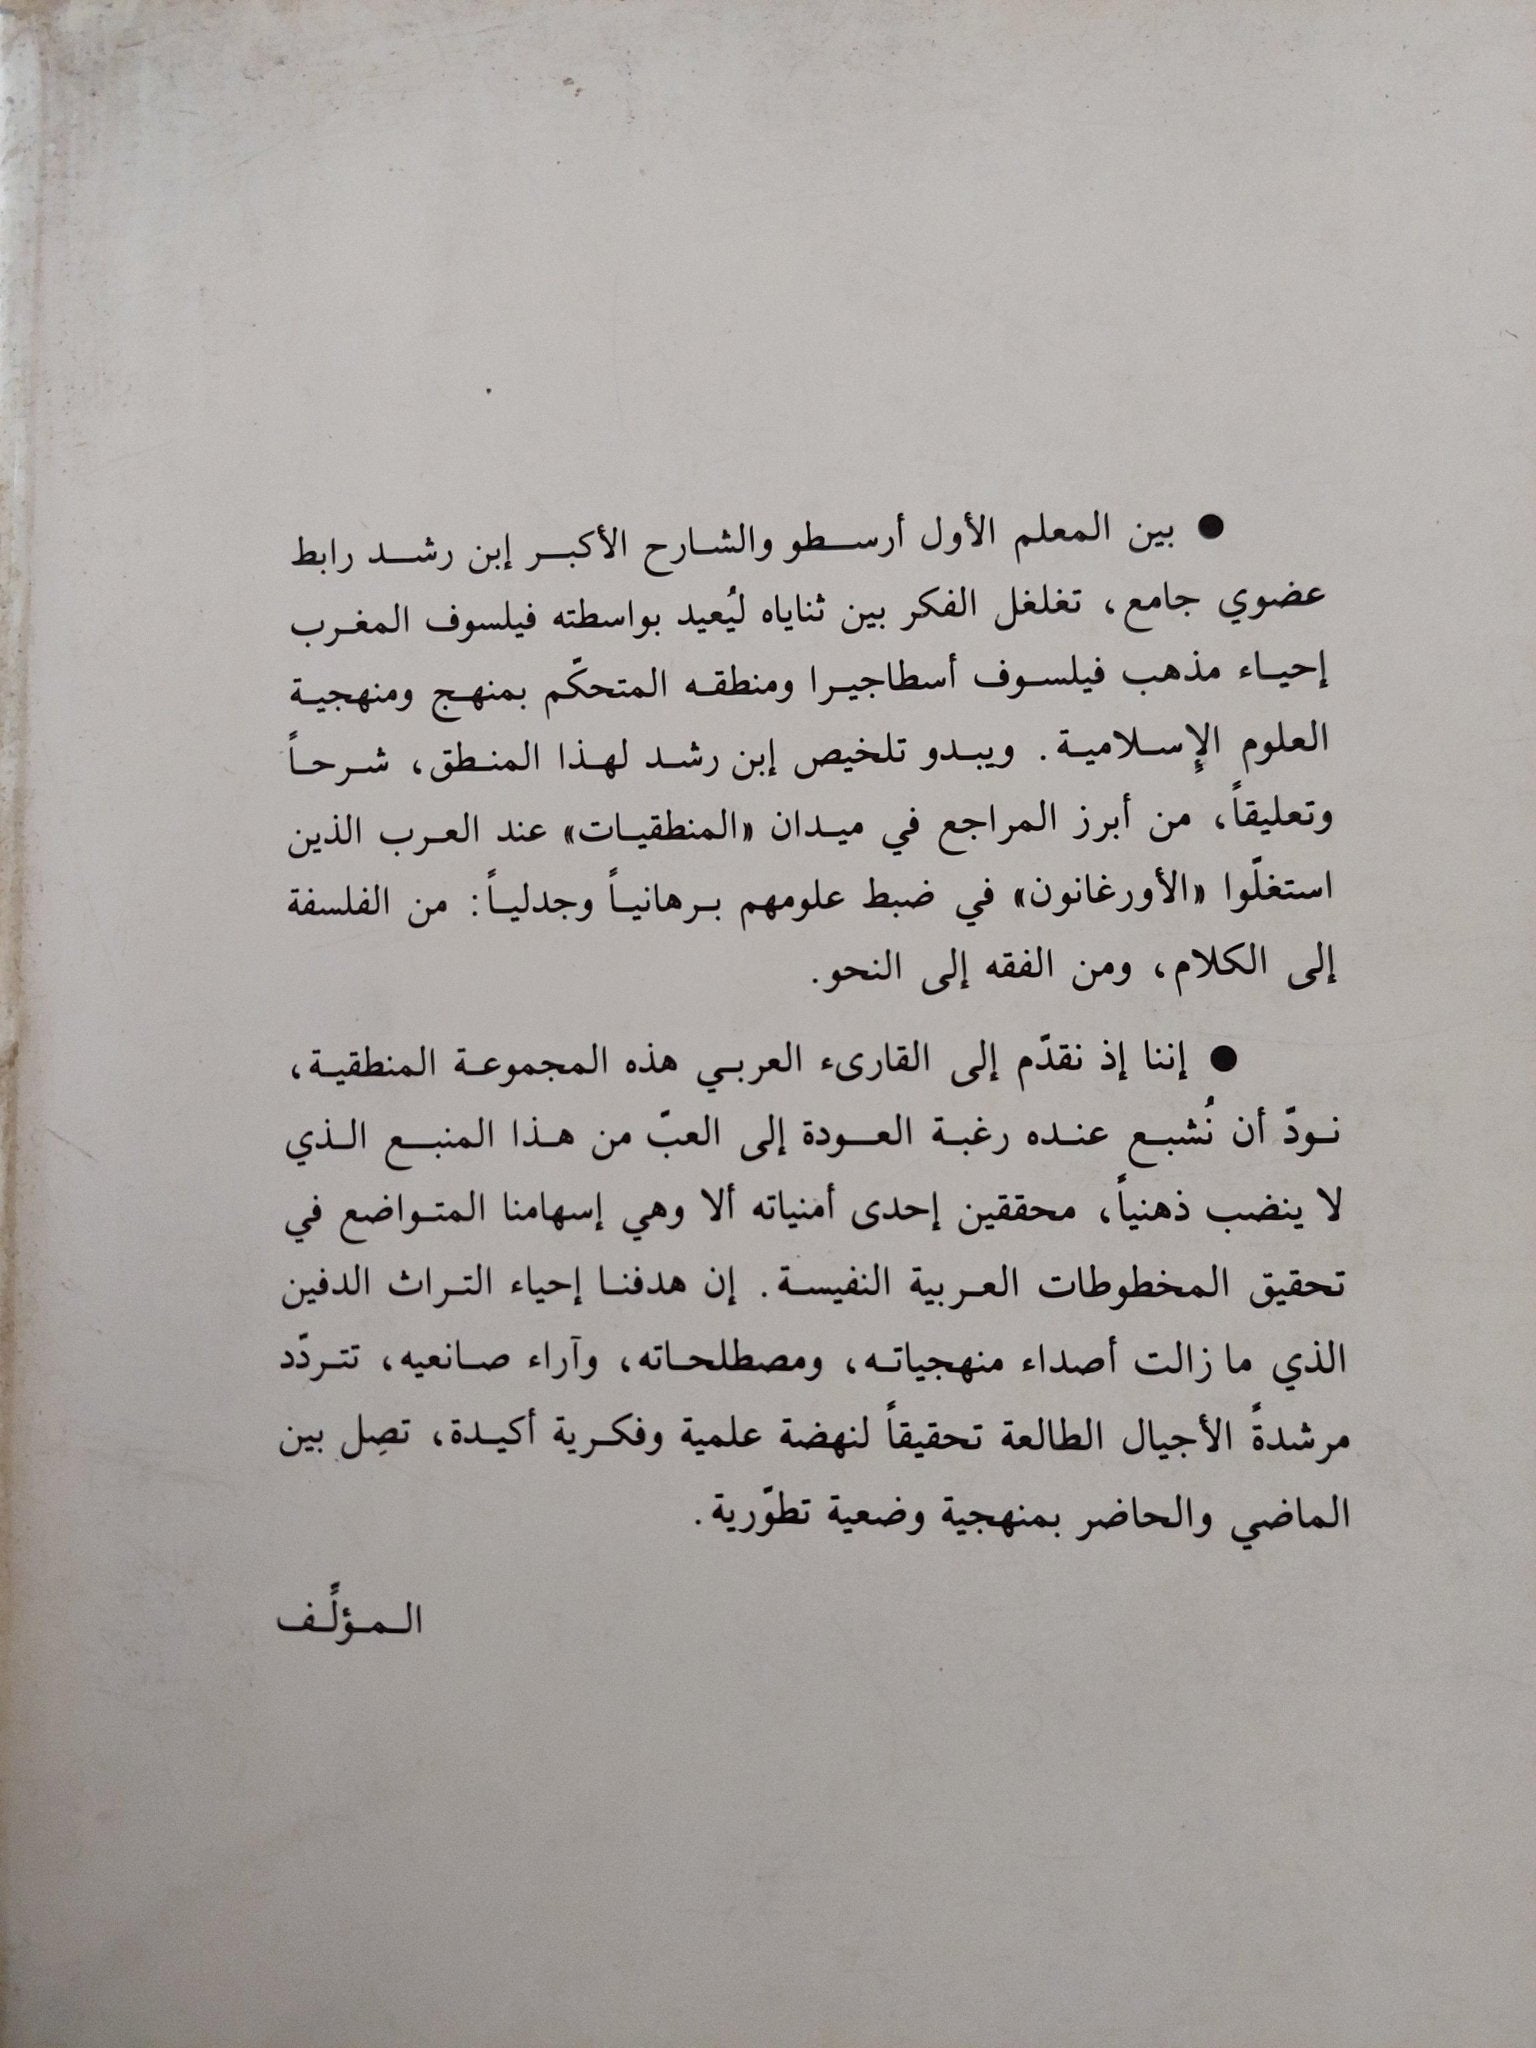 ● بين المعلم الأول أرسطو والشارح الأكبر إبن رشد رابط
عضوي جامع، تغلغل الفكر بين ثناياه ليُعيد بواسطته فيلسوف المغرب
إحياء مذهب فيلسوف أسطاجيرا ومنطقه المتحكّم بمنهج ومنهجية
العلوم الإِسلامية. ويبدو تلخيص إبن رشد لهذا المنطق، شرحاً
وتعليقاً، من أبرز المراجع في ميدان «المنطقيات» عند العرب الذين
استغلّوا «الأورغانون» في ضبط علومهم برهانياً وجدلياً: من الفلسفة
إلى الكلام، ومن الفقه إلى النحو.
● إننا إذ نقدّم إلى القارىء العربي هذه المجموعة المنطقية،
نودّ أن نُشبع عنده رغبة العودة إلى العبّ من هذا المنبع الذي
لا ينضب ذهنياً، محققين إحدى أمنياته ألا وهي إسهامنا المتواضع في
تحقيق المخطوطات العربية النفيسة. إن هدفنا إحياء التراث الدفين
الذي ما زالت أصداء منهجياته، ومصطلحاته، وآراء صانعيه، تتردّد
مرشدةً الأجيال الطالعة تحقيقاً لنهضة علمية وفكرية أكيدة، تصِل بين
الماضي والحاضر بمنهجية وضعية تطوّرية.
المؤلِّف